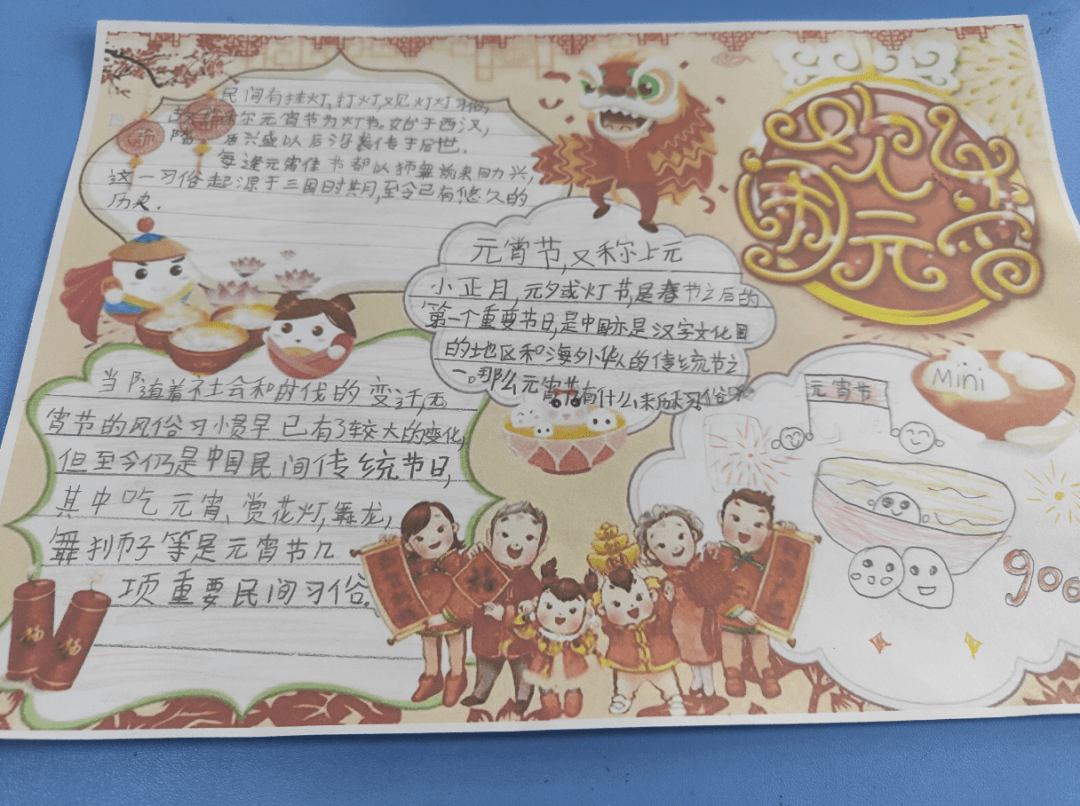 欢乐
闹元宵
民间有挂灯,打灯,观灯灯习俗,
故 称尔元宵节为灯节。始于西汉,
隋唐兴盛以后沿袭传于后世.
每逢元宵佳节都以狮舞前来助兴,
这一习俗起源于三国时期,至今已有悠久的
历史.
元宵节,又称尔上元
小正月,元夕或灯节,是春节之后的
第一个重要节日,是中国亦是汉字文化圈
的地区和海外华人的传统节之
一。那么元宵节有什么来历习俗呢
当随着社会和时代的变迁,元
宵节的风俗习惯早已有了较大的变化,
但至今仍是中国民间传统节日,
其中吃元宵、赏花灯,舞龙,
舞狮子等是元宵节几
项重要民间习俗.
元宵节
Mini
goo
福
福